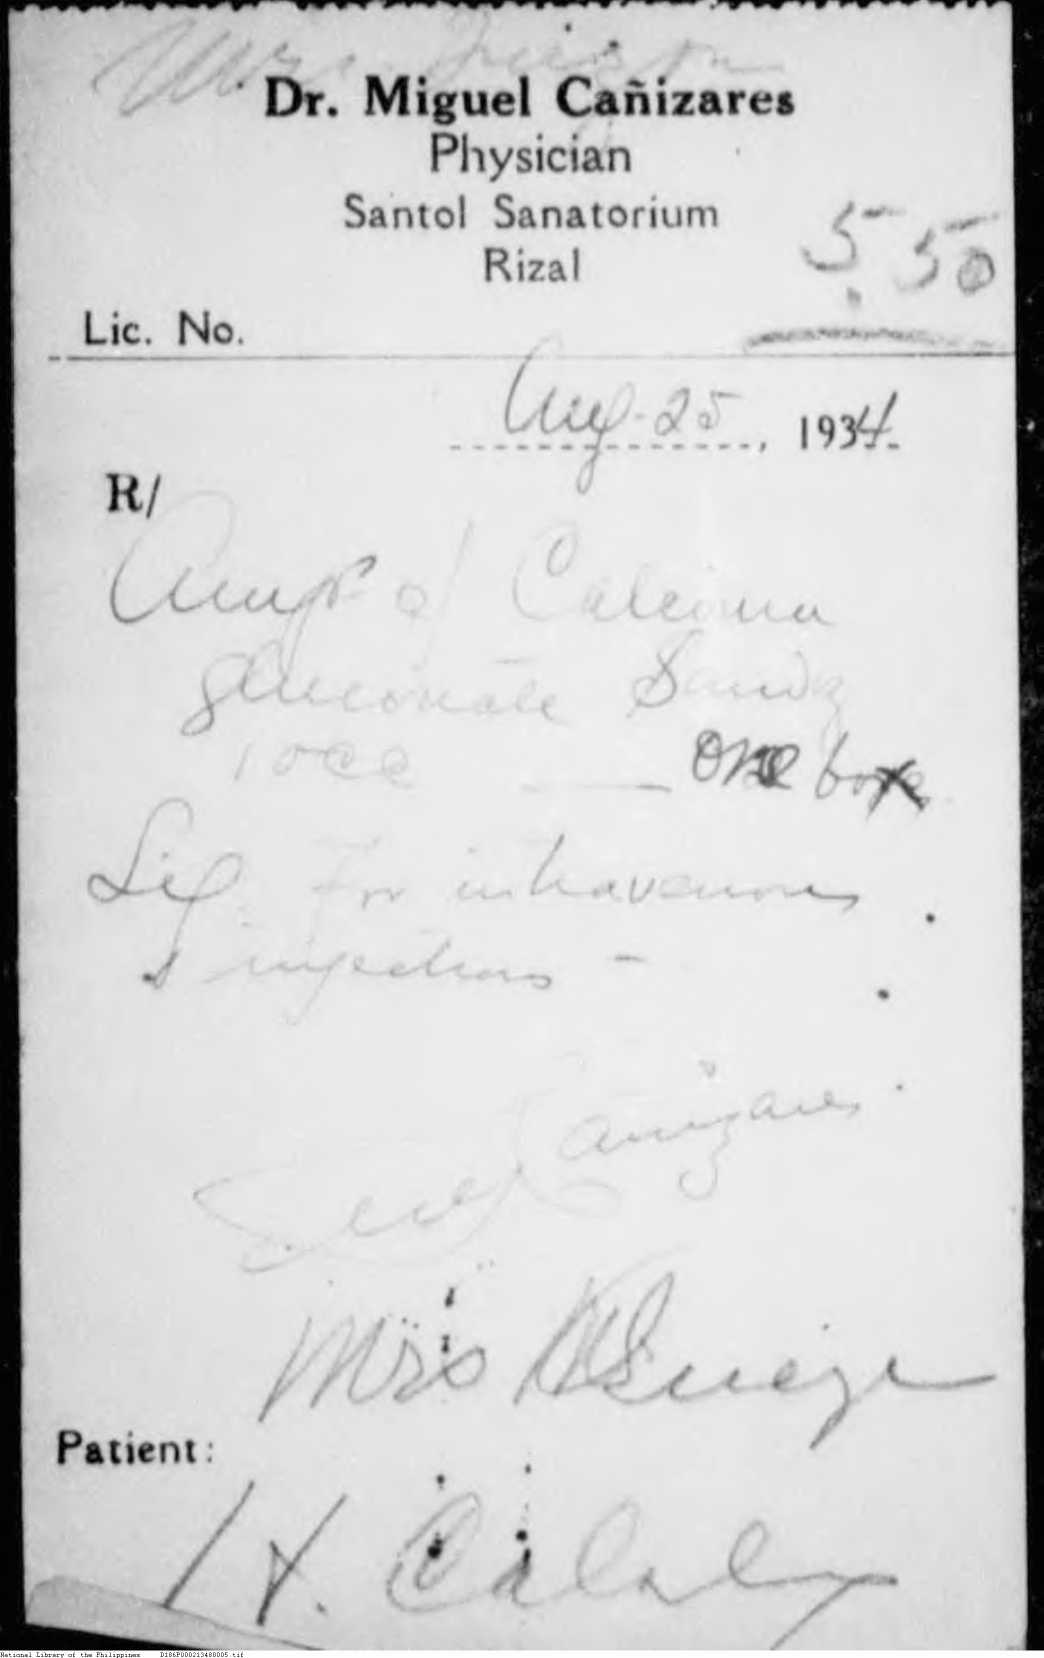 Mrs.
Dr. Miguel Cañizares
Physician
Santol Sanatorium
Rizal
5.50
Lic. No.
Aug. 25, 1934
R/
Amp. of Calcium
gluconate Sandoz
10cc — One box
Sig. For intravenous
injections -
Cañizares
Mrs
Patient:
H.
National Library of the Philippines D186P000213488005.tif